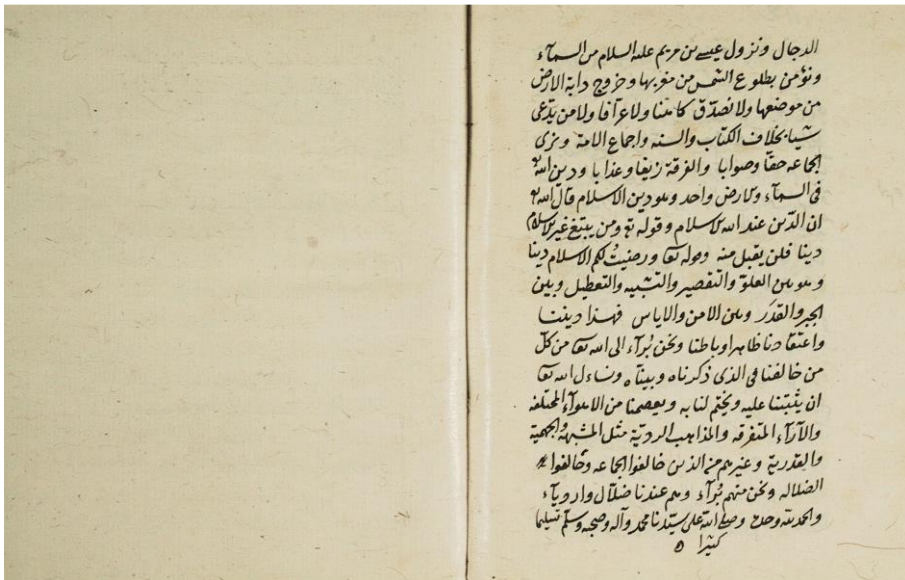 الدجال ونزول عيسى بن مريم عليه السلام من السمآء
ونؤمن بطلوع الشمس من مغربها وخروج دابة الارض
من موضعها ولا نصدق كاهنا ولا عرّافا ولا من يدّعى
شيا بخلاف الكتاب والسنه واجماع الامة ونرى
الجاعه حقا وصوابا والفرقة زيغا وعذابا ودين الله تع
فى السمآء والارض واحد وهو دين الاسلام قال الله تع
ان الدّين عند الله الاسلام وقوله تع ومن يبتغ غير الاسلام
دينا فلن يقبل منه وقوله تعا ورضيتُ لكم الاسلام دينا
وهو بين الغلوّ والتقصير والتشبيه والتعطيل وبين
الجبر والقدَر وبين الامن والاياس فهذا ديننا
واعتقادنا ظاهرا وباطنا ونحن بُرآء الى الله تعا من كلّ
من خالفنا فى الذى ذكرناه وبيناه ونساءل الله تعا
ان يثبتنا عليه ويختم لنا به ويعصمنا من الاهوآء المختلفه
والآرآء المتفرقه والمذاهب الرديّة مثل المشبهه والجهمية
والقدرية وغيرهم من الذين خالفوا الجاعه وحالفوا
الضلاله ونحن منهم بُرآء وهم عندنا ضلّال وارديآء
والحمد لله وحده وصلى الله على سيّدنا محمد وآله وصحبه وسلّم تسليما
كثيرا ه